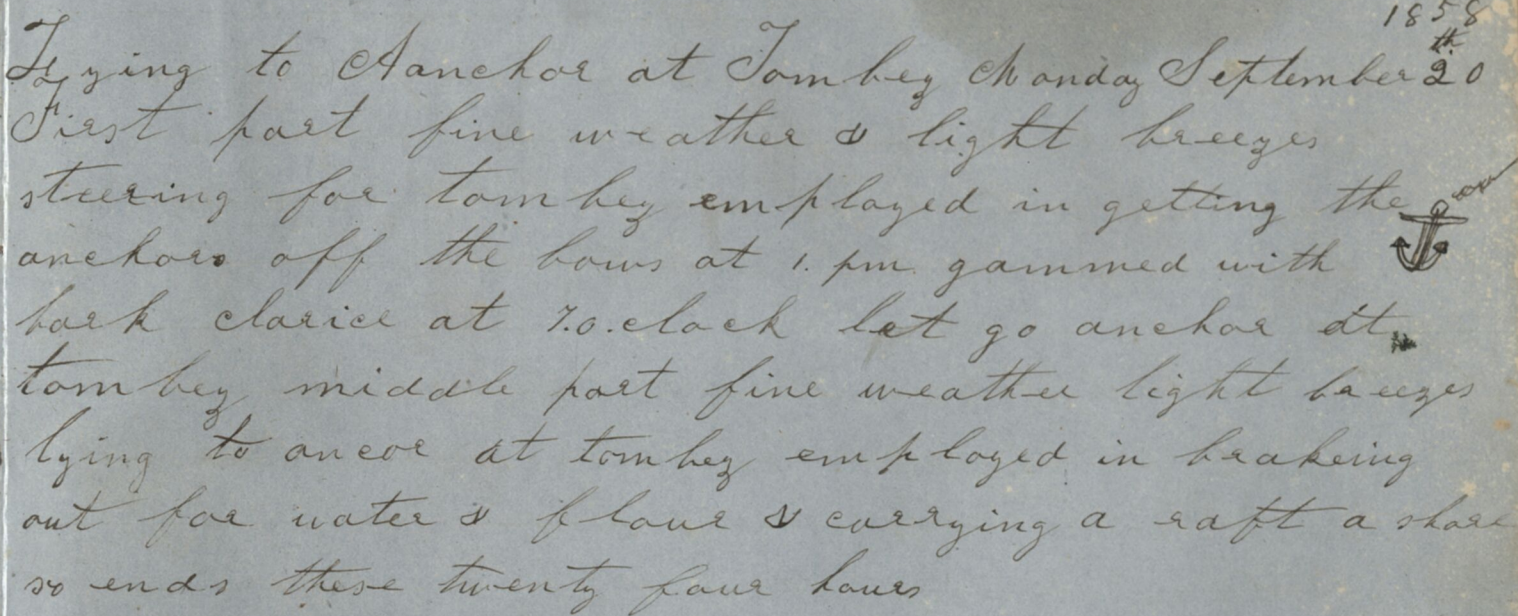 1858
Lying to Aanchor at Tombey Monday September 20th
First part fine weather & light breezes
steering for tombey employed in getting the
anchors off the bows at 1. pm gammed with
bark clarice at 7.o.clock let go anchor at
tombey middle part fine weather light breezes
lying to ancor at tombey employed in brakeing
out for water & flour & carrying a raft a shore
so ends these twenty four hours